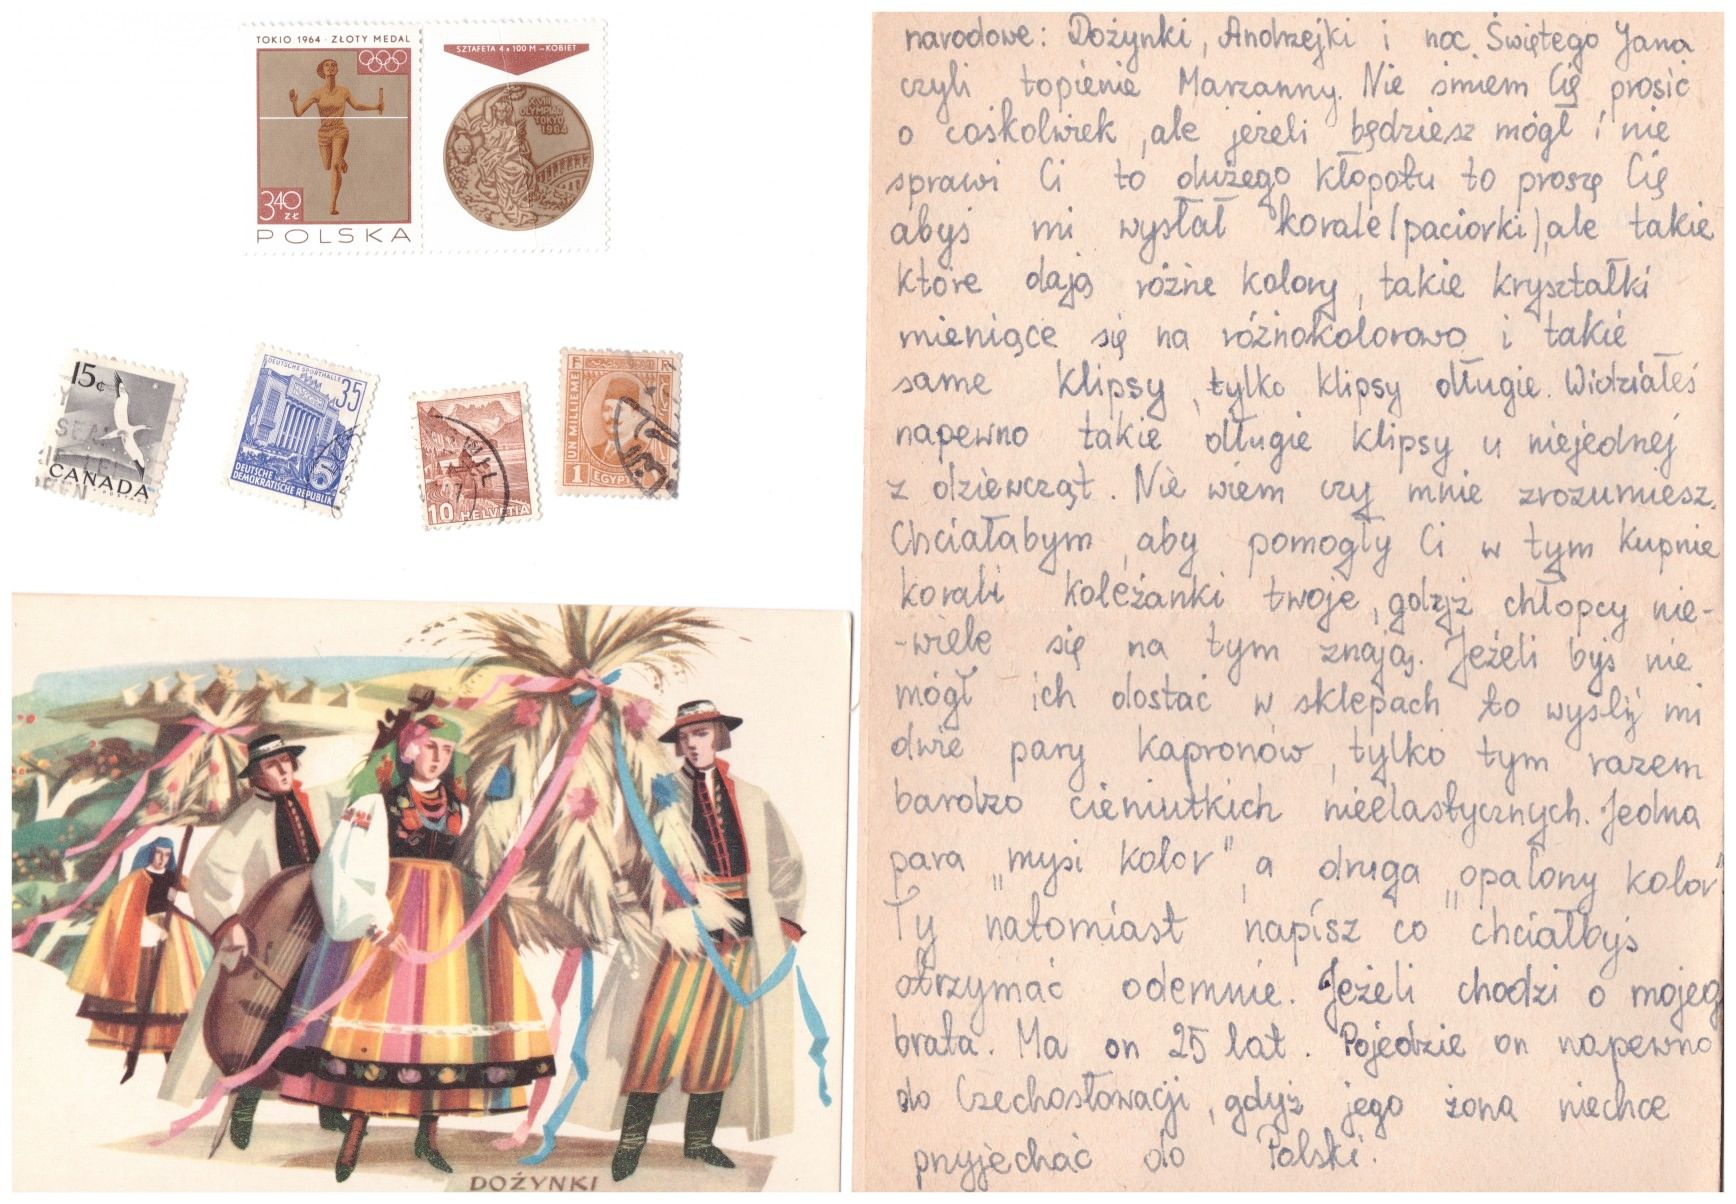 TOKIO 1964 · ZŁOTY MEDAL
340 ZŁ
POLSKA
SZTAFETA 4 x 100 M – KOBIET
XVIII
OLYMPIAD
TOKYO
1964
15¢
CANADA
POSTAGE
DEUTSCHE SPORTHALLE
35
5
DEUTSCHE
DEMOKRATISCHE REPUBLIK
10 HELVETIA
UN MILLIEME
1 EGYPTE
DOŻYNKI
narodowe: Dożynki, Andrzejki i noc Świętego Jana
czyli topienie Marzanny. Nie śmiem Cię prosić
o cośkolwiek, ale jeżeli będziesz mógł i nie
sprawi Ci to dużego kłopotu to proszę Cię
abyś mi wysłał korale (paciorki), ale takie
które dają różne kolory, takie kryształki
mieniące się na różnokolorowo i takie
same klipsy, tylko klipsy długie. Widziałeś
napewno takie długie klipsy u niejednej
z dziewcząt. Nie wiem czy mnie zrozumiesz.
Chciałabym, aby pomogły Ci w tym kupnie
korali koleżanki twoje, gdyż chłopcy nie-
-wiele się na tym znają. Jeżeli byś nie
mógł ich dostać w sklepach to wyślij mi
dwie pary kapronów, tylko tym razem
bardzo cieniutkich nieelastycznych. Jedna
para „mysi kolor" a druga „opalony kolor"
Ty natomiast napisz co chciałbyś
otrzymać odemnie. Jeżeli chodzi o mojeg
brata. Ma on 25 lat. Pojedzie on napewno
do Czechosłowacji, gdyż jego żona niechce
przyjechać do Polski.